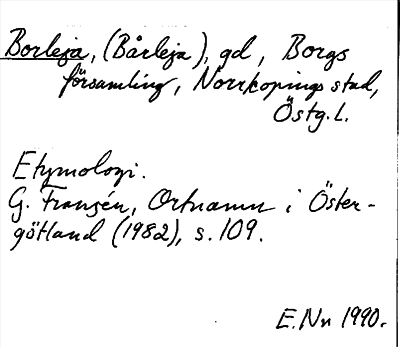 Borleja, (Bårleja), gd, Borgs
församling, Norrköpings stad,
Östg. l.
Etymologi.
G. Franzén, Ortnamn i Öster-
götland (1982), s. 109.
E. Nn 1990.